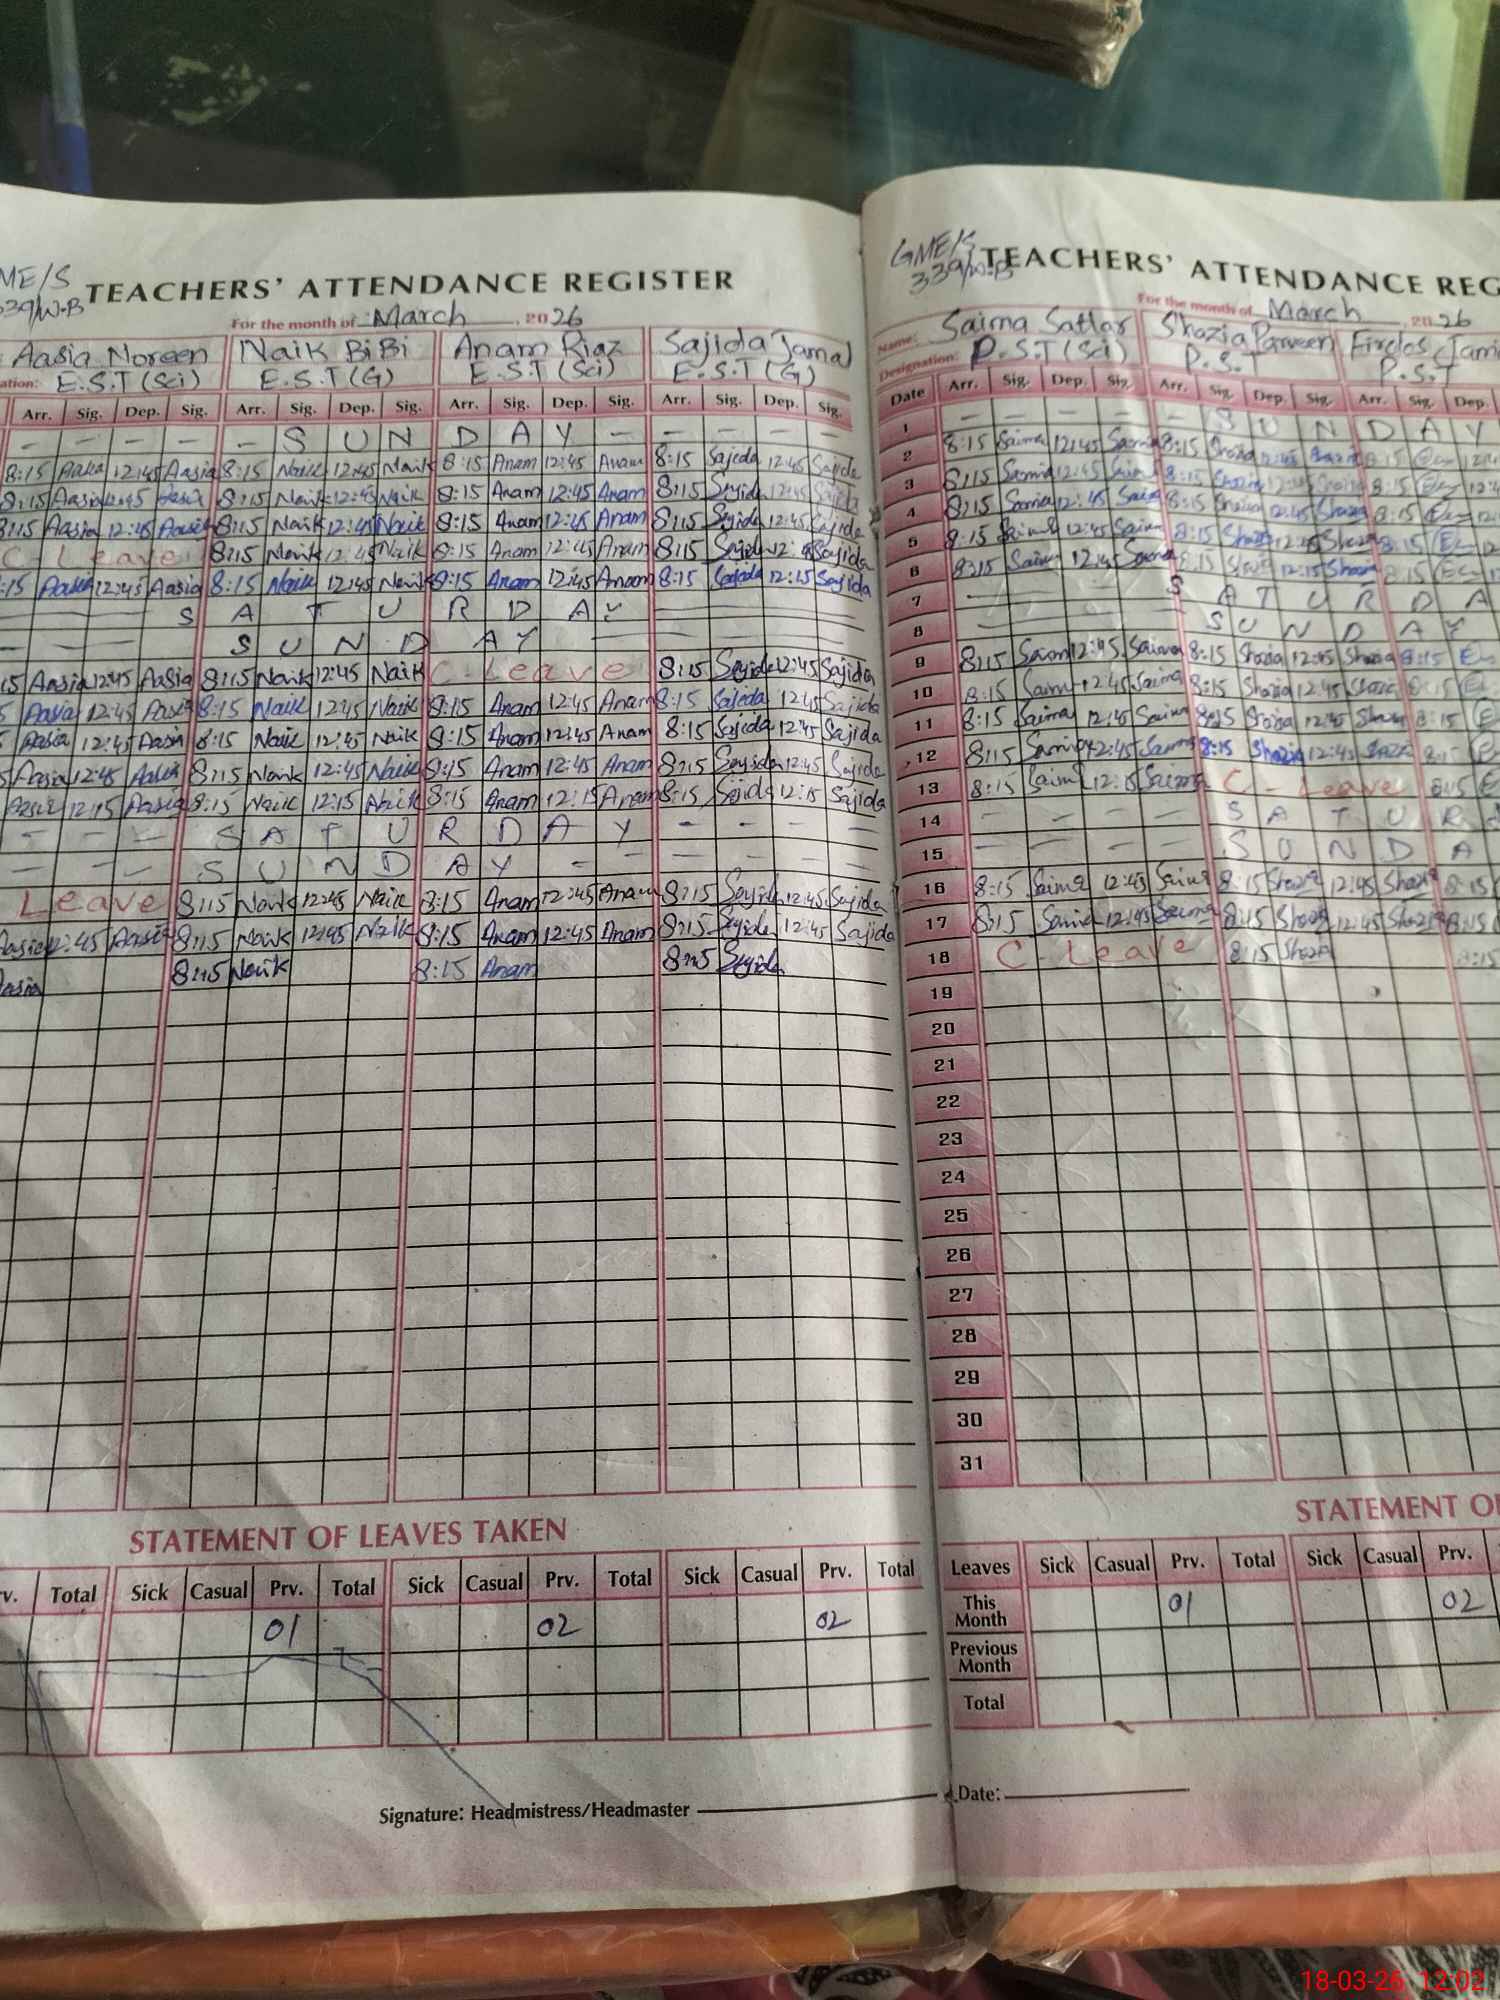 GMES
339/W.B
TEACHERS' ATTENDANCE REGISTER
For the month of March, 2026
Aasia Noreen Naik BiBi Anam Riaz Sajida Jamal
E.S.T (Sci) E.S.T (G) E.S.T (Sci) E.S.T (G)
Arr. Sig. Dep. Sig. Arr. Sig. Dep. Sig. Arr. Sig. Dep. Sig. Arr. Sig. Dep. Sig.
— — — — — S U N D A Y — — — — —
8:15 Aasia 12:45 Aasia 8:15 Naik 12:45 Naik 8:15 Anam 12:45 Anam 8:15 Sajeda 12:45 Sajida
8:15 Aasia 12:45 Aasia 8:15 Naik 12:45 Naik 8:15 Anam 12:45 Anam 8:15 Sajida 12:45 Sajida
8:15 Aasia 12:45 Aasia 8:15 Naik 12:45 Naik 8:15 Anam 12:45 Anam 8:15 Sajida 12:45 Sajida
C - Leave 8:15 Naik 12:45 Naik 8:15 Anam 12:45 Anam 8:15 Sajida 12:45 Sajida
:15 Aasia 12:45 Aasia 8:15 Naik 12:45 Naik 8:15 Anam 12:45 Anam 8:15 Sajeda 12:15 Sajida
S A T U R D A Y
S U N D A Y
15 Aasia 12:45 Aasia 8:15 Naik 12:45 Naik C - Leave 8:15 Sajida 12:45 Sajida
5 Aasia 12:45 Aasia 8:15 Naik 12:45 Naik 8:15 Anam 12:45 Anam 8:15 Sajeda 12:45 Sajida
Aasia 12:45 Aasia 8:15 Naik 12:45 Naik 8:15 Anam 12:45 Anam 8:15 Sajeda 12:45 Sajida
Aasia 12:45 Aasia 8:15 Naik 12:45 Naik 8:15 Anam 12:45 Anam 8:15 Sajida 12:45 Sajida
Aasia 12:15 Aasia 8:15 Naik 12:15 Naik 8:15 Anam 12:15 Anam 8:15 Sajida 12:15 Sajida
- - - S A T U R D A Y - - - -
- - - S U N D A Y - - - - -
Leave 8:15 Naik 12:45 Naik 8:15 Anam 12:45 Anam 8:15 Sajida 12:45 Sajida
Aasia 12:45 Aasia 8:15 Naik 12:45 Naik 8:15 Anam 12:45 Anam 8:15 Sajida 12:45 Sajida
Aasia 8:15 Naik 8:15 Anam 8:15 Sajida
STATEMENT OF LEAVES TAKEN
Total Sick Casual Prv. Total Sick Casual Prv. Total Sick Casual Prv. Total
01 02 02
Signature: Headmistress/Headmaster
GME/S
339/W.B
TEACHERS' ATTENDANCE REG
For the month of March, 2026
Name: Saima Sattar Shazia Parveen Firdos Jami
Designation: P.S.T (Sci) P.S.T P.S.T
Date Arr. Sig. Dep. Sig. Arr. Sig. Dep. Sig. Arr. Sig. Dep.
1 — — — — — S U N D A Y
2 8:15 Saima 12:45 Saima 8:15 Shazia 12:45 Shazia 8:15
3 8:15 Saima 12:45 Saima 8:15 Shazia 12:45 Shazia 8:15
4 8:15 Saima 12:45 Saima 8:15 Shazia 12:45 Shazia 8:15
5 8:15 Saima 12:45 Saima 8:15 Shazia 12:45 Shazia 8:15
6 8:15 Saima 12:45 Saima 8:15 Shazia 12:15 Shazia 8:15
7 S A T U R D A
8 S U N D A Y
9 8:15 Saima 12:45 Saima 8:15 Shazia 12:45 Shazia 8:15
10 8:15 Saima 12:45 Saima 8:15 Shazia 12:45 Shazia 8:15
11 8:15 Saima 12:45 Saima 8:15 Shazia 12:45 Shazia 8:15
12 8:15 Saima 12:45 Saima 8:15 Shazia 12:45 Shazia 8:15
13 8:15 Saima 12:15 Saima C - Leave 8:15
14 - - - - S A T U R
15 - - - - S U N D A
16 8:15 Saima 12:45 Saima 8:15 Shazia 12:45 Shazia 8:15
17 8:15 Saima 12:45 Saima 8:15 Shazia 12:45 Shazia 8:15
18 C - Leave 8:15 Shazia 8:15
19
20
21
22
23
24
25
26
27
28
29
30
31
STATEMENT O
Leaves Sick Casual Prv. Total Sick Casual Prv.
This Month 01 02
Previous Month
Total
Date:
18-03-26 12:02